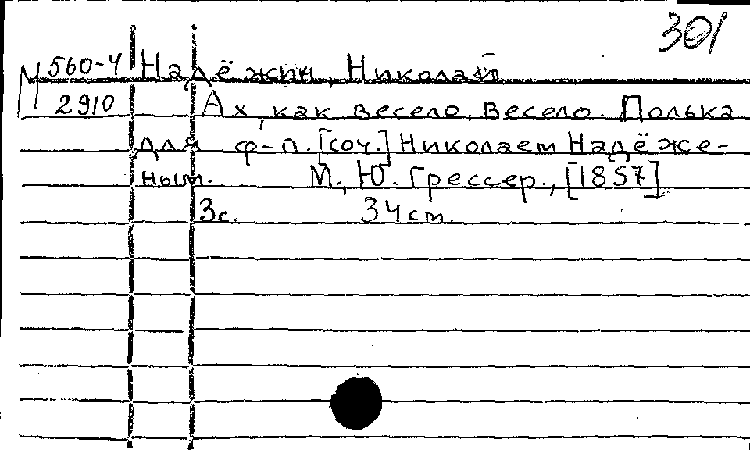 301
М 560-4 Надёжин, Николай
2910 Ах, как весело, весело. Полька
для ф-п. [соч.] Николаем Надёже-
ным. М., Ю. Грессер., [1857]
3с. 34 cm.